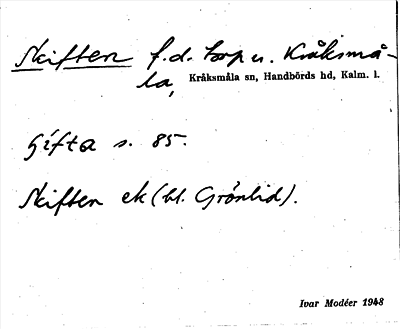 Skiften f.d. torp u. Kråksmå-
la,
Kråksmåla sn, Handbörds hd, Kalm. l.
Gifta s. 85.
Skiften ek (bl. Grönlid).
Ivar Modéer 1948